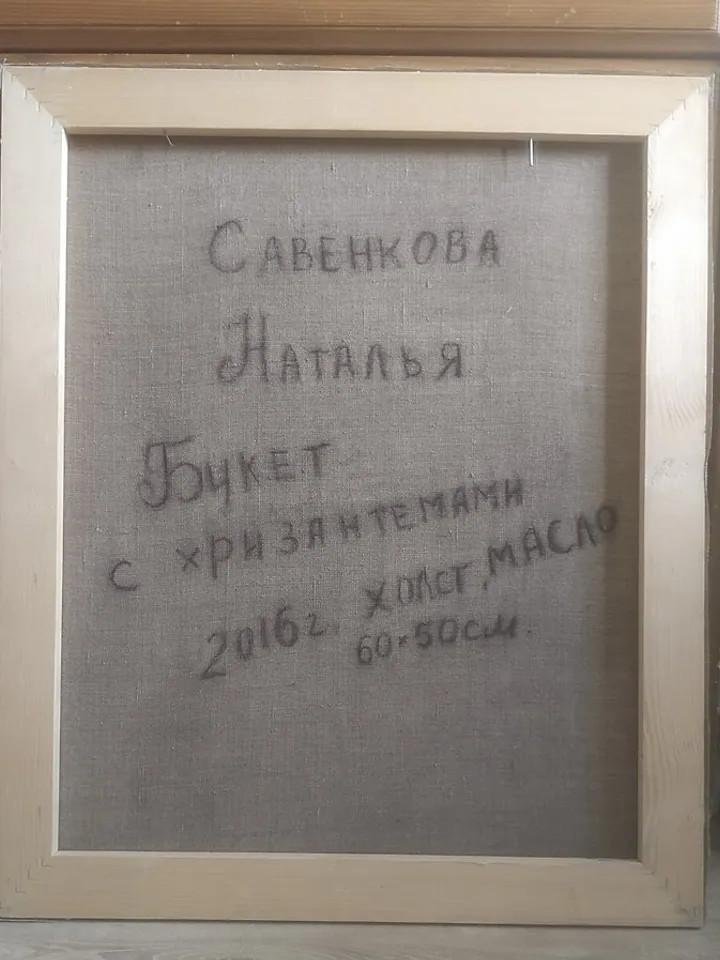 САВЕНКОВА
НАТАЛЬЯ
БУКЕТ
С ХРИЗАНТЕМАМИ
2016г. ХОЛСТ, МАСЛО
60×50см.